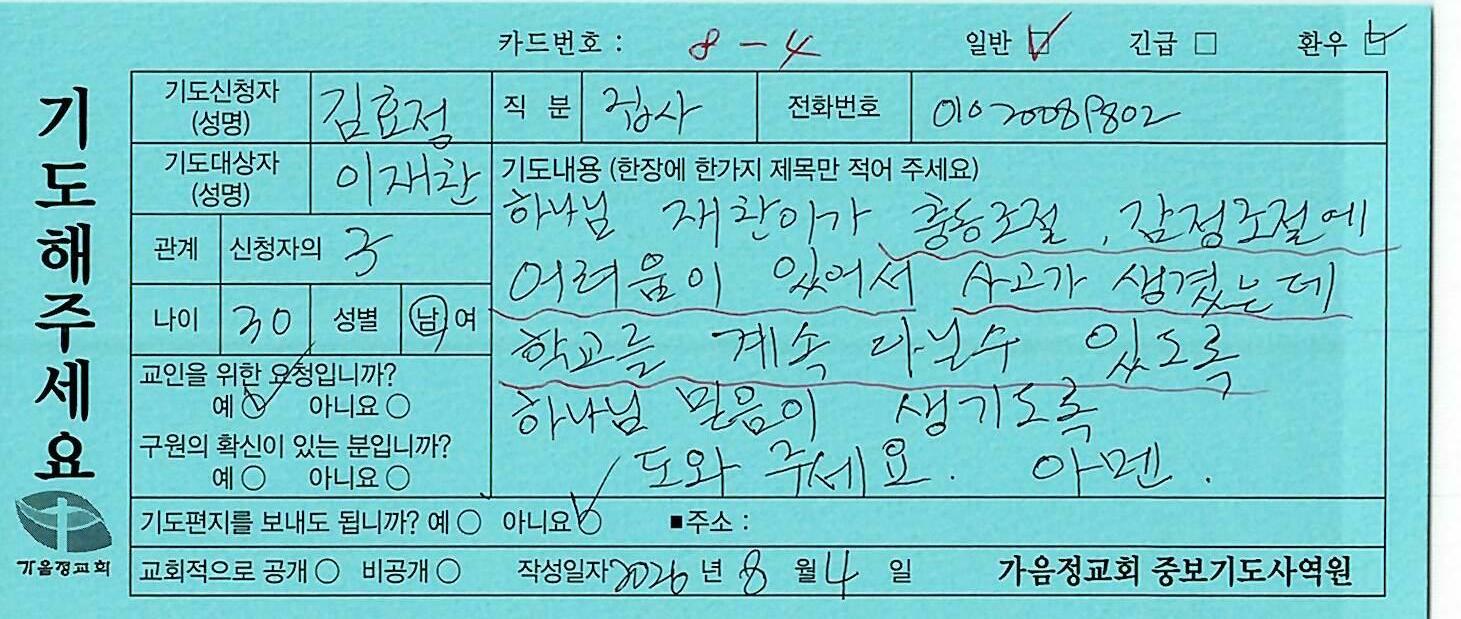 카드번호 : 8 - 4 일반 ☑ 긴급 □ 환우 ☑
기도해주세요
기도신청자 (성명) 김효정 직 분 집사 전화번호
기도대상자 (성명) 이재찬
관계 신청자의 子
나이 30 성별 남 여
교인을 위한 요청입니까?
예 ○ 아니요 ○
구원의 확신이 있는 분입니까?
예 ○ 아니요 ○
기도내용 (한장에 한가지 제목만 적어 주세요)
하나님 재찬이가 충동조절, 감정조절에
어려움이 있어서 사고가 생겼는데
학교를 계속 다닐수 있도록
하나님 믿음이 생기도록
도와 주세요. 아멘.
기도편지를 보내도 됩니까? 예 ○ 아니요 ○ ■주소 :
교회적으로 공개 ○ 비공개 ○ 작성일자 2026 년 8 월 4 일 가음정교회 중보기도사역원
가음정교회